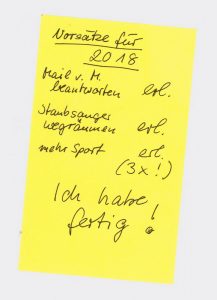 Vorsätze für
2018
Mail v. M.
beantworten erl.
Staubsauger
wegräumen erl.
mehr Sport erl.
(3x!)
Ich habe
fertig!